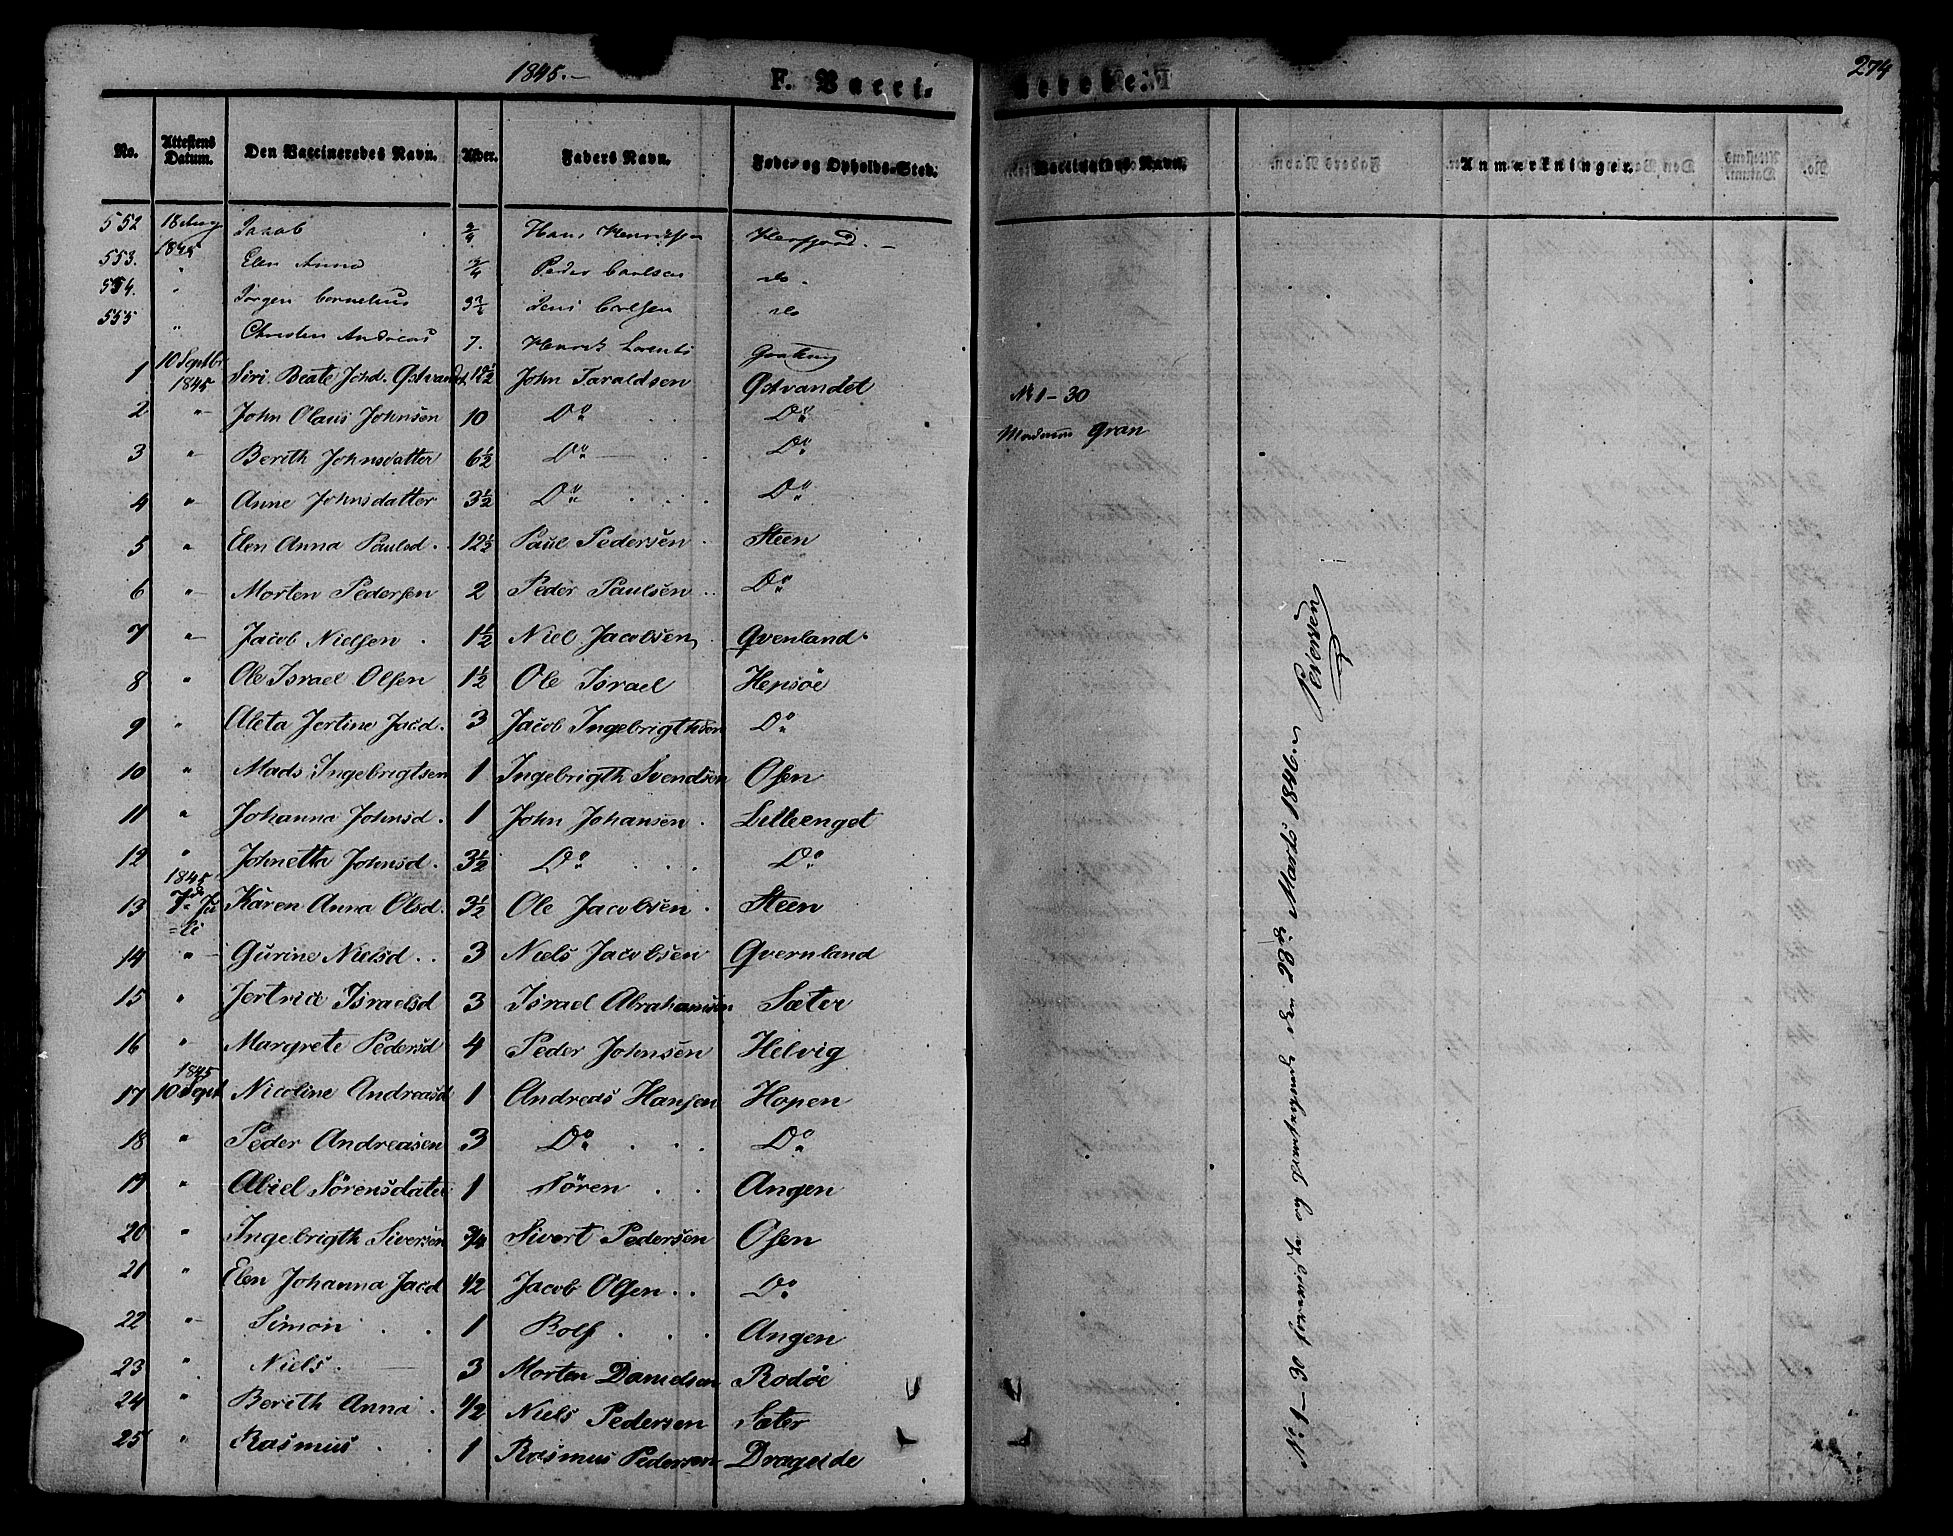 1845.-
F. Vacci- nerede.
274
No. Attestens Datum. Den Vaccineredes Navn. Alder. Faders Navn. Føde- og Opholds-Sted. Vaccineurens Navn. Anmærkninger.
552 18 Aug 1845 Jacob Hans Henriksen
553. " Elen Anna Peder Carlsen do.
554. " Jørgen Cornelius Jens Carlsen do
555 " Christen Andreas 7. Henrik Lorents
1 10 Septbr 1845 Siri Beate Johd. Østvandet 12½ John Taraldsen Østvandet
2 " John Olaus Johnsen 10 Do Do
3 " Berith Johnsdatter 6½ Do Do
4 " Anne Johnsdatter 3½ Do Do
5 " Elen Anna Paulsd. 12½ Paul Pedersen Steen
6 " Morten Pedersen 2 Peder Paulsen Do
7 " Jacob Nielsen 1½ Niel Jacobsen Qvenland
8 " Ole Israel Olsen 1½ Ole Israel Hepsöe
9 " Aleta Jertine Jacd. 3 Jacob Ingebrigthsen Do
10 " Mads Ingebrigtsen 1 Ingebrigth Svendsen Osen
11 " Johanna Johnsd. 1 John Johansen Lilleenget
12 " Johnetta Johnsd. 3½ Do Do
13 1845 7de Juli Karen Anna Olsd. 3½ Ole Jacobsen Steen
14 " Gurine Nielsd 3 Niels Jacobsen Qvernland
15 " Jertrice Israelsd 3 Israel Abrahamsen Sæter
16 " Margrete Pedersd 4 Peder Johnsen Helvig
17 1845 10 Sept Nicoline Andreasd 1 Andreas Hansen Hopen
18 " Peder Andreasen 3 Do Do
19 " Abiel Sörensdater 1 Sören Angen
20 " Ingebrigth Siversen 3/4 Sivert Pedersen Osen
21 " Elen Johanna Jacd 1/2 Jacob Olsen Do
22 " Simon 1 Rolf Angen
23 " Niels 3 Morten Danielsen Rodöe
24 " Berith Anna 1/2 Niels Pedersen Sæter
25 " Rasmus 1 Rasmus Pedersen Drageide
No 1-30
Madame Gran
No 1-30 Marts 1846. Pedersen